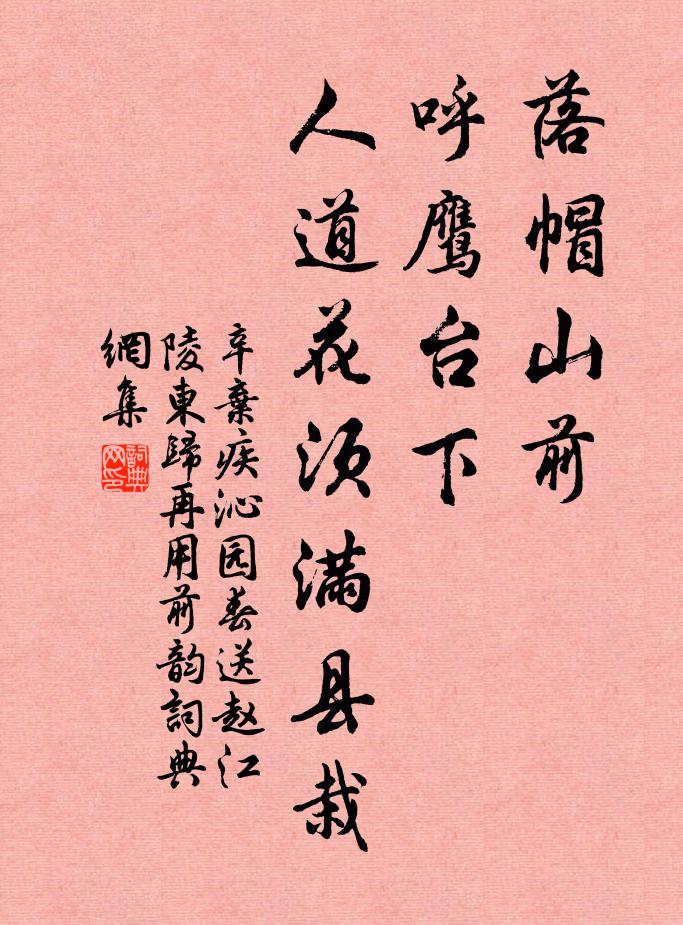 落帽山前
呼鹰台下
人道花须满县栽
辛棄疾沁园春送赵江
陵東歸再用前韵詞典
網集
詞典
网印